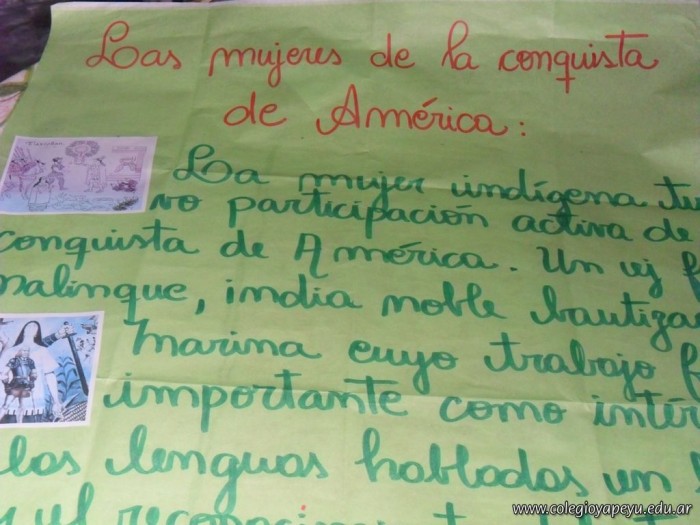 Las mujeres de la conquista
de América:
La mujer indígena tu
vo participación activa de
conquista de América. Un ej
malinque, india noble bautiza
Marina cuyo trabajo
importante como inté
los lenguas habladas un
www.colegioyapeyu.edu.ar